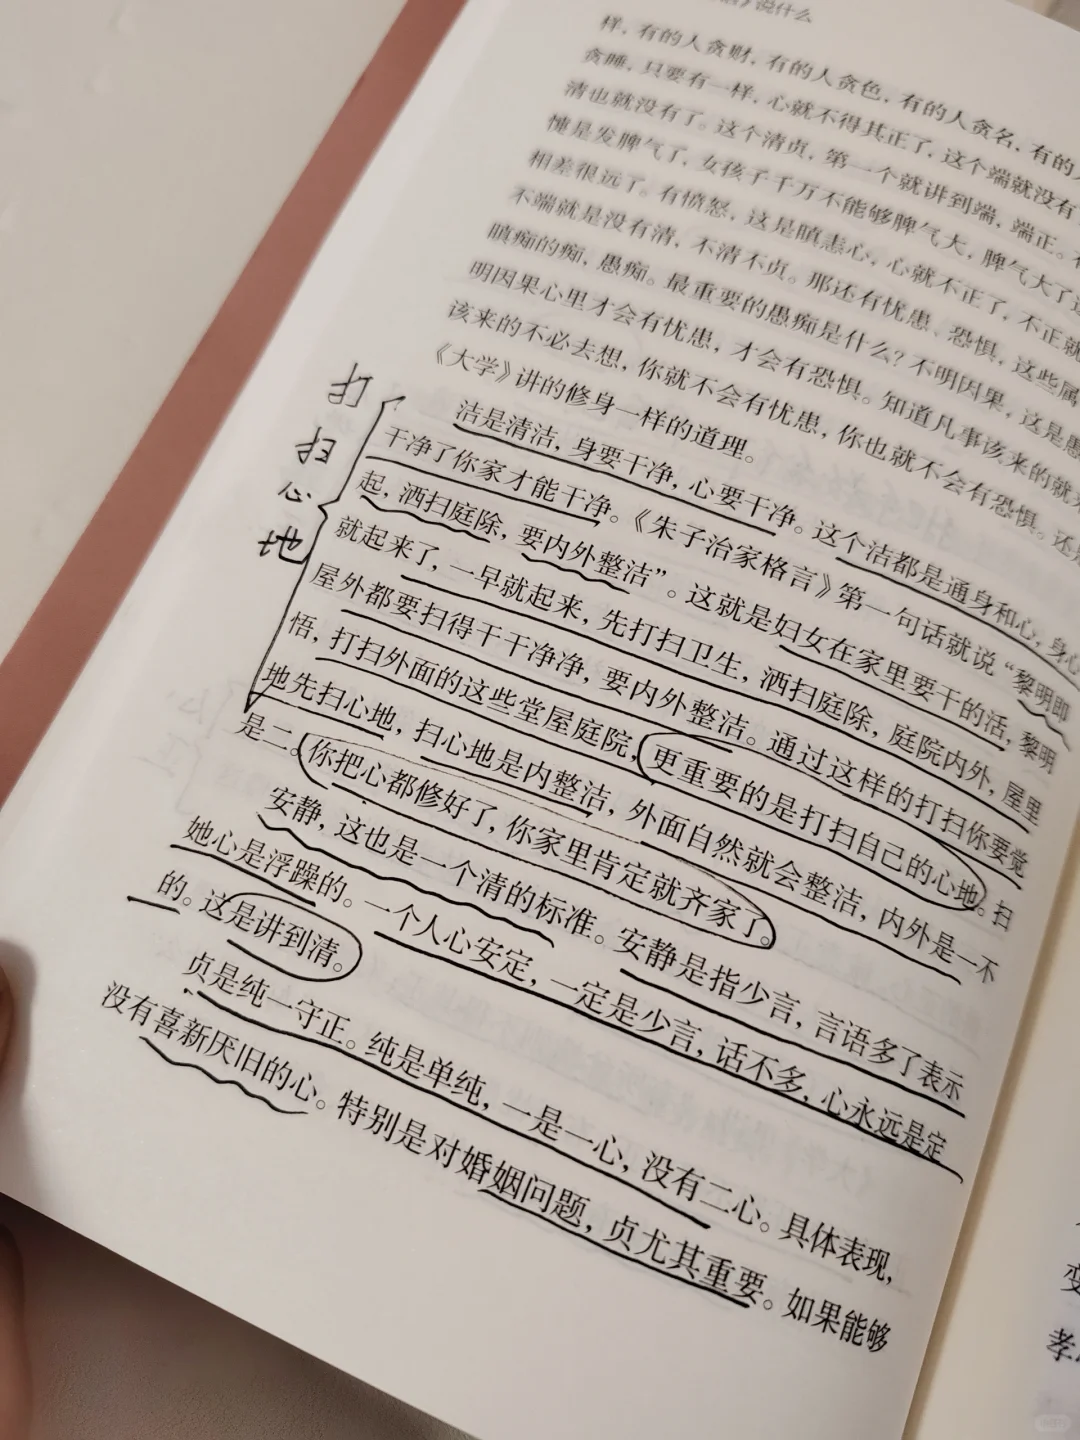 说什么
样，有的人贪财，有的人贪色，有的人贪名，有的
贪睡，只要有一样，心就不得其正了，这个端就没有
清也就没有了。这个清贞，第一个就讲到端，端正。
懥是发脾气了，女孩子千万不能够脾气大，脾气大了
相差很远了。有愤怒，这是瞋恚心，心就不正了，不正就
不端就是没有清，不清不贞。那还有忧患、恐惧，这些属
瞋痴的痴，愚痴。最重要的愚痴是什么？不明因果，这是愚
明因果心里才会有忧患，才会有恐惧。知道凡事该来的就
该来的不必去想，你就不会有忧患，你也就不会有恐惧。还
《大学》讲的修身一样的道理。
洁是清洁，身要干净，心要干净。这个洁都是通身和心，身心
干净了你家才能干净。《朱子治家格言》第一句话就说“黎明即
起，洒扫庭除，要内外整洁”。这就是妇女在家里要干的活，黎明
就起来了，一早就起来，先打扫卫生，洒扫庭除，庭院内外，屋里
屋外都要扫得干干净净，要内外整洁。通过这样的打扫你要觉
悟，打扫外面的这些堂屋庭院，更重要的是打扫自己的心地。扫
地先扫心地，扫心地是内整洁，外面自然就会整洁，内外是一不
是二。你把心都修好了，你家里肯定就齐家了。
安静，这也是一个清的标准。安静是指少言，言语多了表示
她心是浮躁的。一个人心安定，一定是少言，话不多，心永远是定
的。这是讲到清。
贞是纯一守正。纯是单纯，一是一心，没有二心。具体表现，
没有喜新厌旧的心。特别是对婚姻问题，贞尤其重要。如果能够
心
地
变
孝